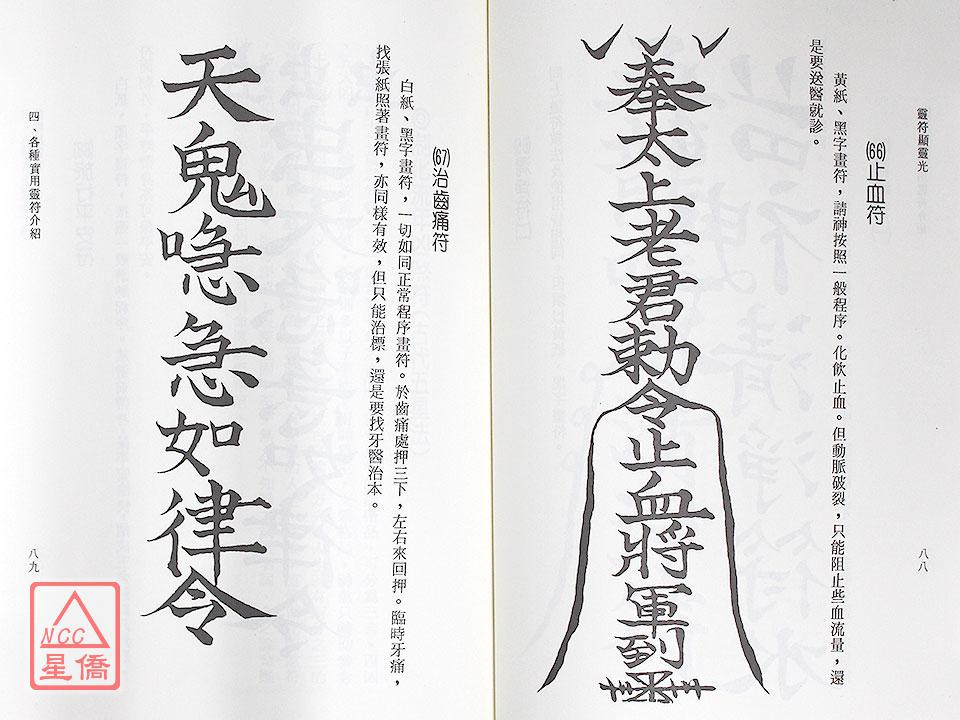 靈符顯靈光
八八
(66)止血符
黃紙、黑字畫符，請神按照一般程序。化飲止血。但動脈破裂，只能阻止些血流量，還
是要送醫就診。
奉太上老君勅令止血將軍到
(67)治齒痛符
白紙、黑字畫符，一切如同正常程序畫符。於齒痛處押三下，左右來回押。臨時牙痛，
找張紙照著畫符，亦同樣有效，但只能治標，還是要找牙醫治本。
天鬼喼急如律令
四、各種實用靈符介紹
八九
NCC
星僑